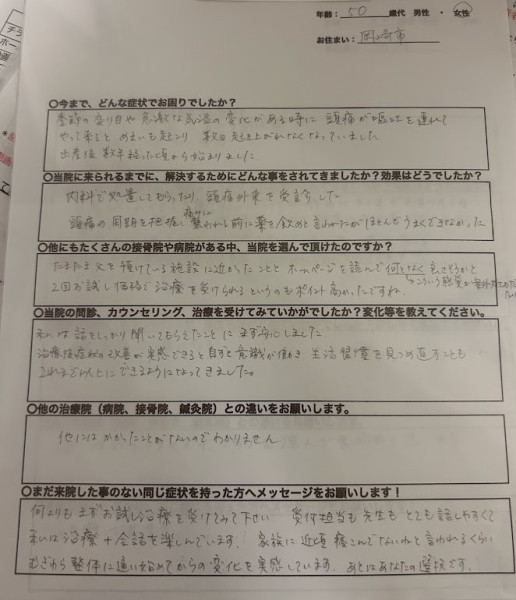 年齢： 50 歳代 男性 ・ 女性
お住まい： 岡崎市
○今まで、どんな症状でお困りでしたか？
季節の変り目や急激な気温の変化がある時に 頭痛が嘔吐を連れて
やって来ると めまいも起こり 数日起き上がれなくなっていました
出産後 数年経った頃から始まりました
○当院に来られるまでに、解決するためにどんな事をされてきましたか？効果はどうでしたか？
内科で処置してもらったり、頭痛外来を受診した
頭痛の周期を把握し 痛みに襲われる前に薬を飲めと言われたがほとんどうまくできなかった
○他にもたくさんの接骨院や病院がある中、当院を選んで頂けたのですか？
たまたま父を預けている施設に近かったことと ホームページを読んで何となく
2回お試し価格で治療を受けられるというのもポイント高かったですね
○当院の問診、カウンセリング、治療を受けてみていかがでしたか？変化等を教えてください。
私は話をしっかり聞いてもらえたことにまず安心しました
治療後症状の改善が実感できると自ずと意識が働き 生活習慣を見つめ直すことも
できるようになってきました。
○他の治療院（病院、接骨院、鍼灸院）との違いをお願いします。
他にはかかったことがないのでわかりません
○まだ来院した事のない同じ症状を持った方へメッセージをお願いします！
何よりもまずお試し治療を受けてみて下さい 受付担当も先生もとても話しやすくて
私は治療＋会話を楽しんでいます。 家族に近頃寝こんでないねと言われるくらい
整体に通い始めてからの変化を実感しています。あとはあなたの選択です。